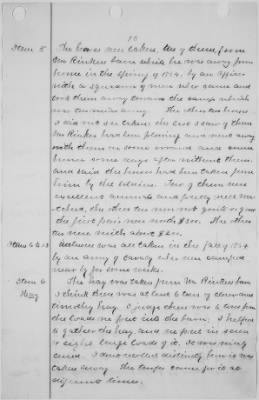 10
Item 5 The horses were taken, two of them, from
Mr Rinkers barn while he was away from
home in the spring of 1864, by an officer
with a squad of men who came and
took them away towards the camp which
was away. The other two horses
I did not see taken, the last I saw of them
Mr Rinker had been plowing and went away
with them on some errand and came
home some days after without them
and said the horses had been taken from
him by the soldiers. Two of them were
animals and pretty near
the other two were not quite so good
the first pair were worth $300. The other
two were worth about $200.
Items 6 to 13 were all taken in the fall of 1864
by an army of cavalry who were camped
near by for some weeks.
Item 6 The hay was taken from Mr Rinkers barn
Hay I think there was at least 6 tons of clover and
timothy hay. I judge there was 6 tons from
the loads we put into the barn. I helped
to gather the hay and we put in seven
or eight large loads of it. It was
cured. I do recollect distinctly how it was
taken away. The came for it at
different times.